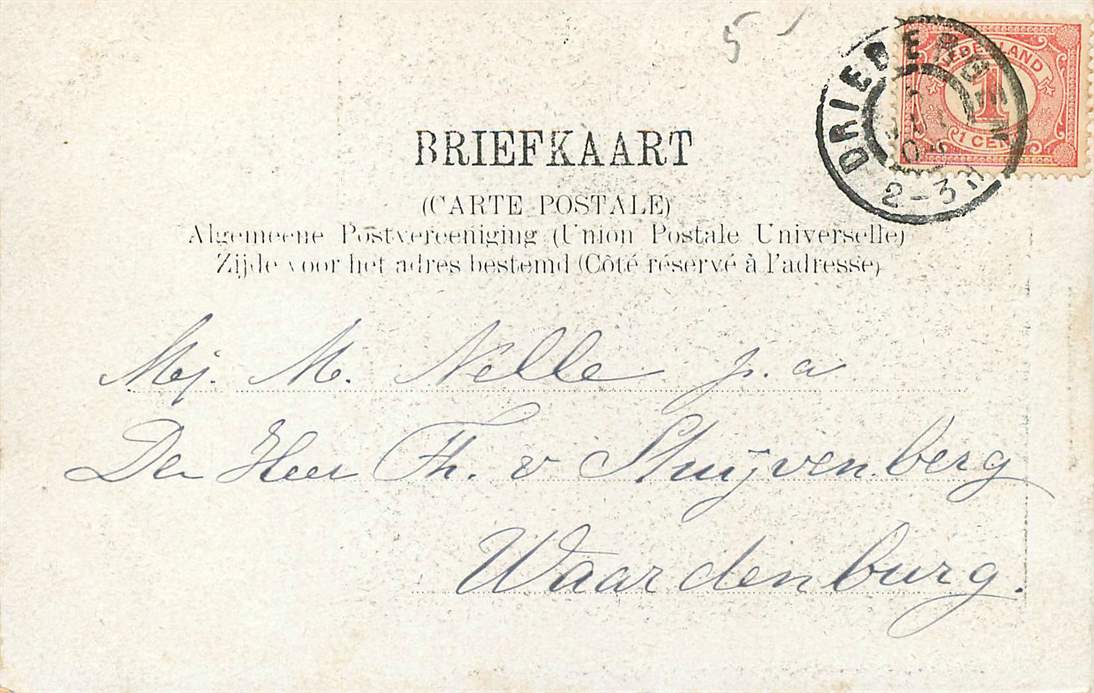 5
DRIEBERGEN
2-3N
NEDERLAND
1
1 CENT
BRIEFKAART
(CARTE POSTALE)
Algemeene Postvereeniging (Union Postale Universelle)
Zijde voor het adres bestemd (Côté réservé à l'adresse)
Mej. M. Nelle p. a
Den Heer Th. v Stuijvenberg
Waardenburg.